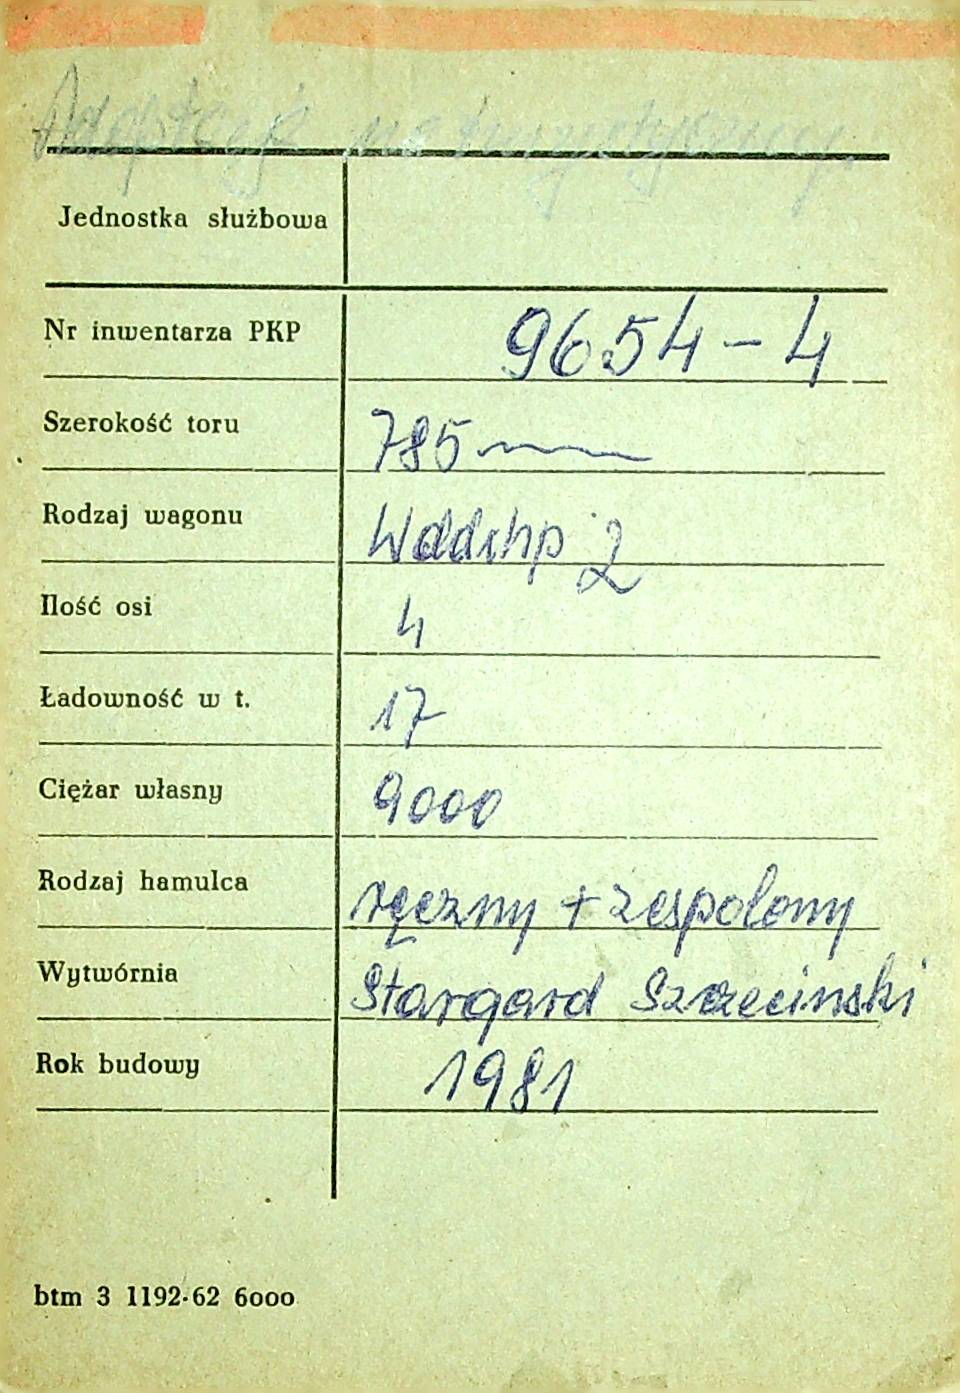 Adaptacja na turystyczny.
Jednostka służbowa
Nr inwentarza PKP 9654-4
Szerokość toru 785 mm
Rodzaj wagonu Wddxhp 2
Ilość osi 4
Ładowność w t. 17
Ciężar własny 9000
Rodzaj hamulca ręczny + zespolony
Wytwórnia Stargard Szczecinski
Rok budowy 1981
btm 3 1192-62 6000